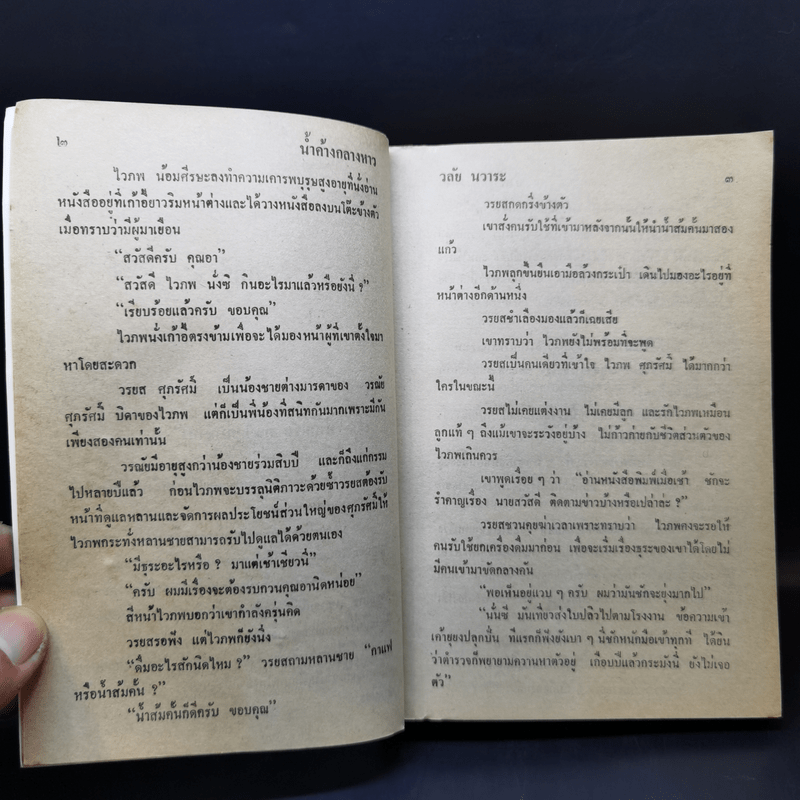 ๒
น้ำค้างกลางหาว
ไวภพ น้อมศีรษะลงทำความเคารพบุรุษสูงอายุที่นั่งอ่าน
หนังสืออยู่ที่เก้าอี้ยาวริมหน้าต่างและได้วางหนังสือลงบนโต๊ะข้างตัว
เมื่อทราบว่ามีผู้มาเยือน
“สวัสดีครับ คุณอา”
“สวัสดี ไวภพ นั่งซิ กินอะไรมาแล้วหรือยังนี่ ?”
“เรียบร้อยแล้วครับ ขอบคุณ”
ไวภพนั่งเก้าอี้ตรงข้ามเพื่อจะได้มองหน้าผู้ที่เขาตั้งใจมา
หาโดยสะดวก
วรยส ศุภรัศมิ์ เป็นน้องชายต่างมารดาของ วรณัย
ศุภรัศมิ์ บิดาของไวภพ แต่ก็เป็นพี่น้องที่สนิทกันมากเพราะมีกัน
เพียงสองคนเท่านั้น
วรณัยมีอายุสูงกว่าน้องชายร่วมสิบปี และก็ถึงแก่กรรม
ไปหลายปีแล้ว ก่อนไวภพจะบรรลุนิติภาวะด้วยซ้ำวรยสต้องรับ
หน้าที่ดูแลหลานและจัดการผลประโยชน์ส่วนใหญ่ของศุภรัศมิ์ให้
ไวภพกระทั่งหลานชายสามารถรับไปดูแลได้ด้วยตนเอง
“มีธุระอะไรหรือ ? มาแต่เช้าเชียวนี่”
“ครับ ผมมีเรื่องจะต้องรบกวนคุณอานิดหน่อย”
สีหน้าไวภพบอกว่าเขากำลังครุ่นคิด
วรยสรอฟัง แต่ไวภพก็ยังนิ่ง
“ดื่มอะไรสักนิดไหม ?” วรยสถามหลานชาย “กาแฟ
หรือน้ำส้มคั้น ?”
“น้ำส้มคั้นก็ดีครับ ขอบคุณ”
วลัย นวาระ
๓
วรยสกดกริ่งข้างตัว
เขาสั่งคนรับใช้ที่เข้ามาหลังจากนั้นให้นำน้ำส้มคั้นมาสอง
แก้ว
ไวภพลุกขึ้นยืนเอามือล้วงกระเป๋า เดินไปมองอะไรอยู่ที่
หน้าต่างอีกด้านหนึ่ง
วรยสชำเลืองมองแล้วก็เฉยเสีย
เขาทราบว่า ไวภพยังไม่พร้อมที่จะพูด
วรยสเป็นคนเดียวที่เข้าใจ ไวภพ ศุภรัศมิ์ ได้มากกว่า
ใครในขณะนี้
วรยสไม่เคยแต่งงาน ไม่เคยมีลูก และรักไวภพเหมือน
ลูกแท้ ๆ ถึงแม้เขาจะระวังอยู่บ้าง ไม่ก้าวก่ายกับชีวิตส่วนตัวของ
ไวภพเกินควร
เขาพูดเรื่อย ๆ ว่า “อ่านหนังสือพิมพ์เมื่อเช้า ชักจะ
รำคาญเรื่อง นายสวัสดี ติดตามข่าวบ้างหรือเปล่าล่ะ ?”
วรยสชวนคุยฆ่าเวลาเพราะทราบว่า ไวภพคงจะรอให้
คนรับใช้ยกเครื่องดื่มมาก่อน เพื่อจะเริ่มเรื่องธุระของเขาได้โดยไม่
มีคนเข้ามาขัดกลางคัน
“พอเห็นอยู่แวบ ๆ ครับ ผมว่ามันชักจะยุ่งมากไป”
“นั่นซี มันเที่ยวส่งใบปลิวไปตามโรงงาน ข้อความเข้า
เค้ายุยงปลุกปั่น ทีแรกก็ฟังยังเบา ๆ นี่ชักหนักมือเข้าทุกที ได้ยิน
ว่าตำรวจก็พยายามควานหาตัวอยู่ เกือบปีแล้วกระมังนี่ ยังไม่เจอ
ตัว”